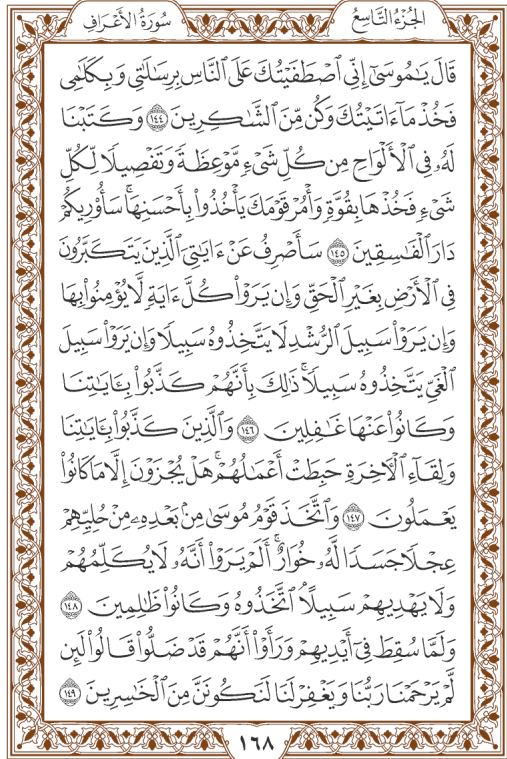 الجُزْءُ التَّاسِعُ
سُورَةُ الأَعْرَافِ
قَالَ يَٰمُوسَىٰٓ إِنِّي ٱصْطَفَيْتُكَ عَلَى ٱلنَّاسِ بِرِسَٰلَٰتِي وَبِكَلَٰمِي
فَخُذْ مَآ ءَاتَيْتُكَ وَكُن مِّنَ ٱلشَّٰكِرِينَ ١٤٤ وَكَتَبْنَا
لَهُۥ فِي ٱلْأَلْوَاحِ مِن كُلِّ شَيْءٍ مَّوْعِظَةً وَتَفْصِيلًا لِّكُلِّ
شَيْءٍ فَخُذْهَا بِقُوَّةٍ وَأْمُرْ قَوْمَكَ يَأْخُذُوا۟ بِأَحْسَنِهَا ۚ سَأُو۟رِيكُمْ
دَارَ ٱلْفَٰسِقِينَ ١٤٥ سَأَصْرِفُ عَنْ ءَايَٰتِيَ ٱلَّذِينَ يَتَكَبَّرُونَ
فِي ٱلْأَرْضِ بِغَيْرِ ٱلْحَقِّ وَإِن يَرَوْا۟ كُلَّ ءَايَةٍ لَّا يُؤْمِنُوا۟ بِهَا
وَإِن يَرَوْا۟ سَبِيلَ ٱلرُّشْدِ لَا يَتَّخِذُوهُ سَبِيلًا وَإِن يَرَوْا۟ سَبِيلَ
ٱلْغَيِّ يَتَّخِذُوهُ سَبِيلًا ۚ ذَٰلِكَ بِأَنَّهُمْ كَذَّبُوا۟ بِـَٔايَٰتِنَا
وَكَانُوا۟ عَنْهَا غَٰفِلِينَ ١٤٦ وَٱلَّذِينَ كَذَّبُوا۟ بِـَٔايَٰتِنَا
وَلِقَآءِ ٱلْأَخِرَةِ حَبِطَتْ أَعْمَٰلُهُمْ ۚ هَلْ يُجْزَوْنَ إِلَّا مَا كَانُوا۟
يَعْمَلُونَ ١٤٧ وَٱتَّخَذَ قَوْمُ مُوسَىٰ مِنۢ بَعْدِهِۦ مِنْ حُلِيِّهِمْ
عِجْلًا جَسَدًا لَّهُۥ خُوَارٌ ۚ أَلَمْ يَرَوْا۟ أَنَّهُۥ لَا يُكَلِّمُهُمْ
وَلَا يَهْدِيهِمْ سَبِيلًا ۘ ٱتَّخَذُوهُ وَكَانُوا۟ ظَٰلِمِينَ ١٤٨
وَلَمَّا سُقِطَ فِيٓ أَيْدِيهِمْ وَرَأَوْا۟ أَنَّهُمْ قَدْ ضَلُّوا۟ قَالُوا۟ لَئِن
لَّمْ يَرْحَمْنَا رَبُّنَا وَيَغْفِرْ لَنَا لَنَكُونَنَّ مِنَ ٱلْخَٰسِرِينَ ١٤٩
١٦٨